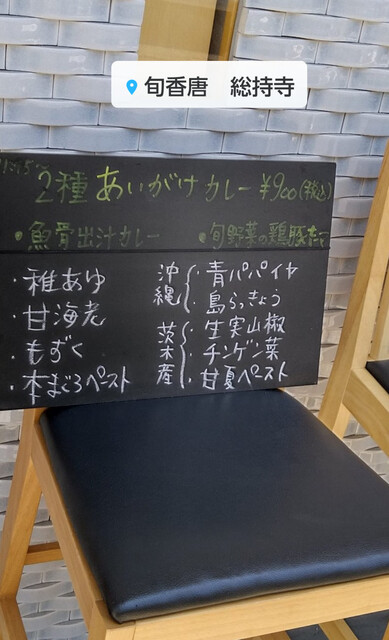 旬香唐 総持寺
2種 あいがけ カレー ¥900(税込)
・魚骨出汁カレー ・旬野菜の鶏豚
・稚あゆ
・甘海老
・もずく
・本まぐろペースト
沖縄 ・青パパイヤ
・島らっきょう
茨木産 ・生実山椒
・チンゲン菜
・甘夏ペースト